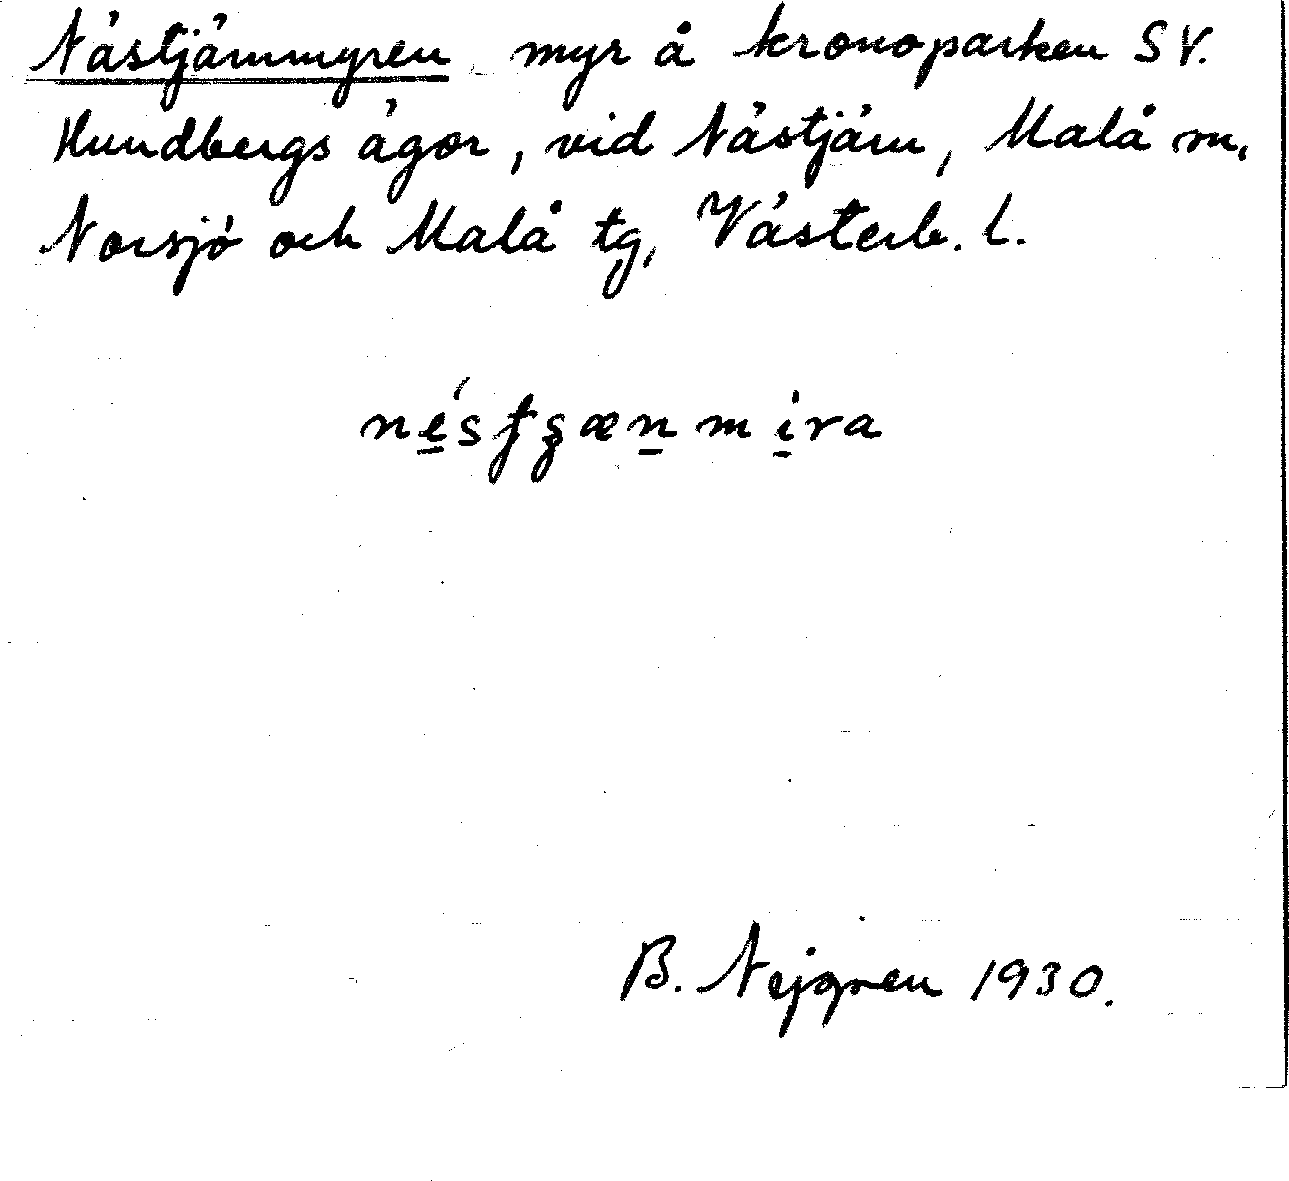 Nästjärnmyren, myr å kronoparken SV.
Hundbergs ägor, vid Nästjärn, Malå sn,
Norsjö och Malå tg, Västerb. l.
né̱sƫʒæṉmi̱̇ra
B. Nejgren 1930.